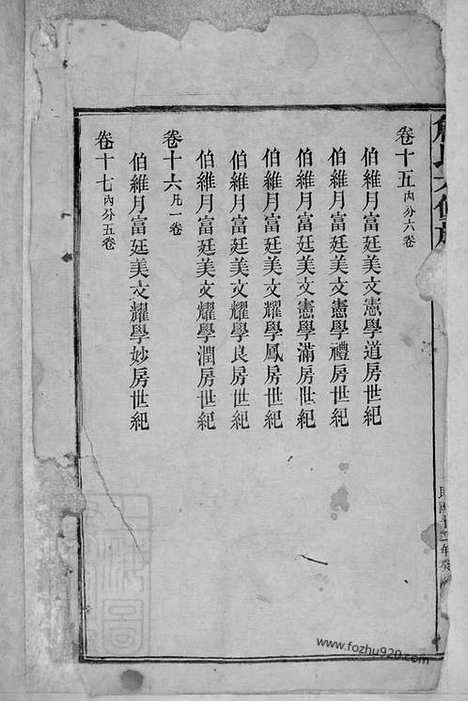 卷十五內分六卷
伯維月富廷美文憲學道房世紀
伯維月富廷美文憲學禮房世紀
伯維月富廷美文憲學滿房世紀
伯維月富廷美文耀學鳳房世紀
伯維月富廷美文耀學良房世紀
伯維月富廷美文耀學潤房世紀
卷十六凡一卷
伯維月富廷美文耀學妙房世紀
卷十七內分五卷
www.fozhu920.com